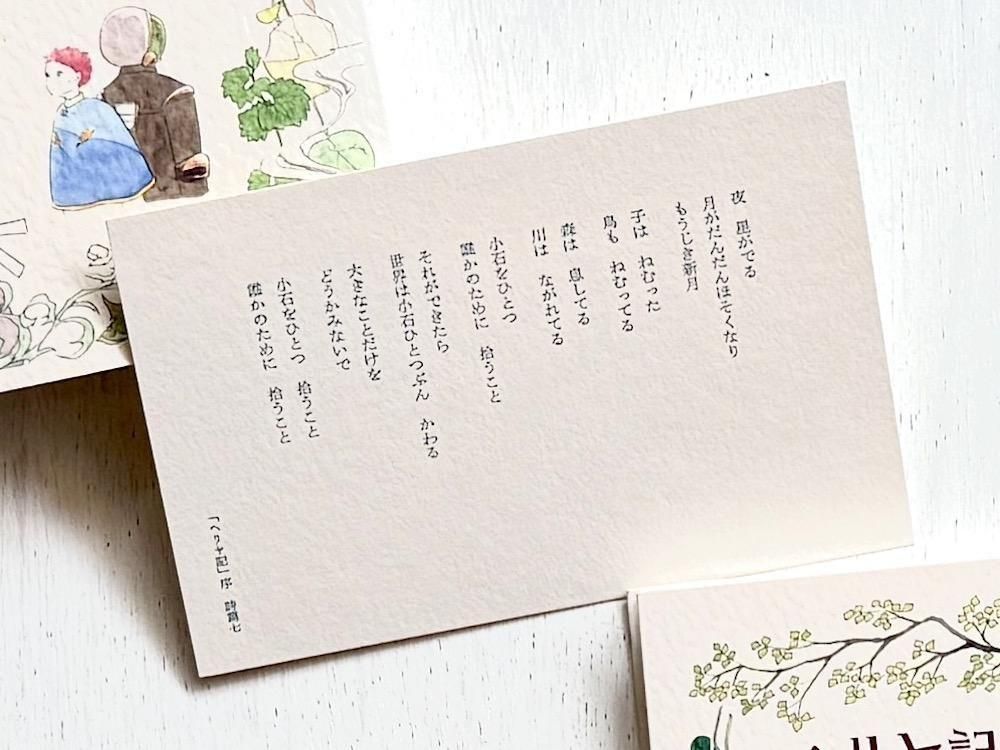 夜　星がでる
月がだんだんほそくなり
もうじき新月
子は　ねむった
鳥も　ねむってる
森は　息してる
川は　ながれてる
小石をひとつ
誰かのために　拾うこと
それができたら
世界は小石ひとつぶん　かわる
大きなことだけを
どうかみないで
小石をひとつ　拾うこと
誰かのために　拾うこと
「ヘリヤ記」序　詩篇七